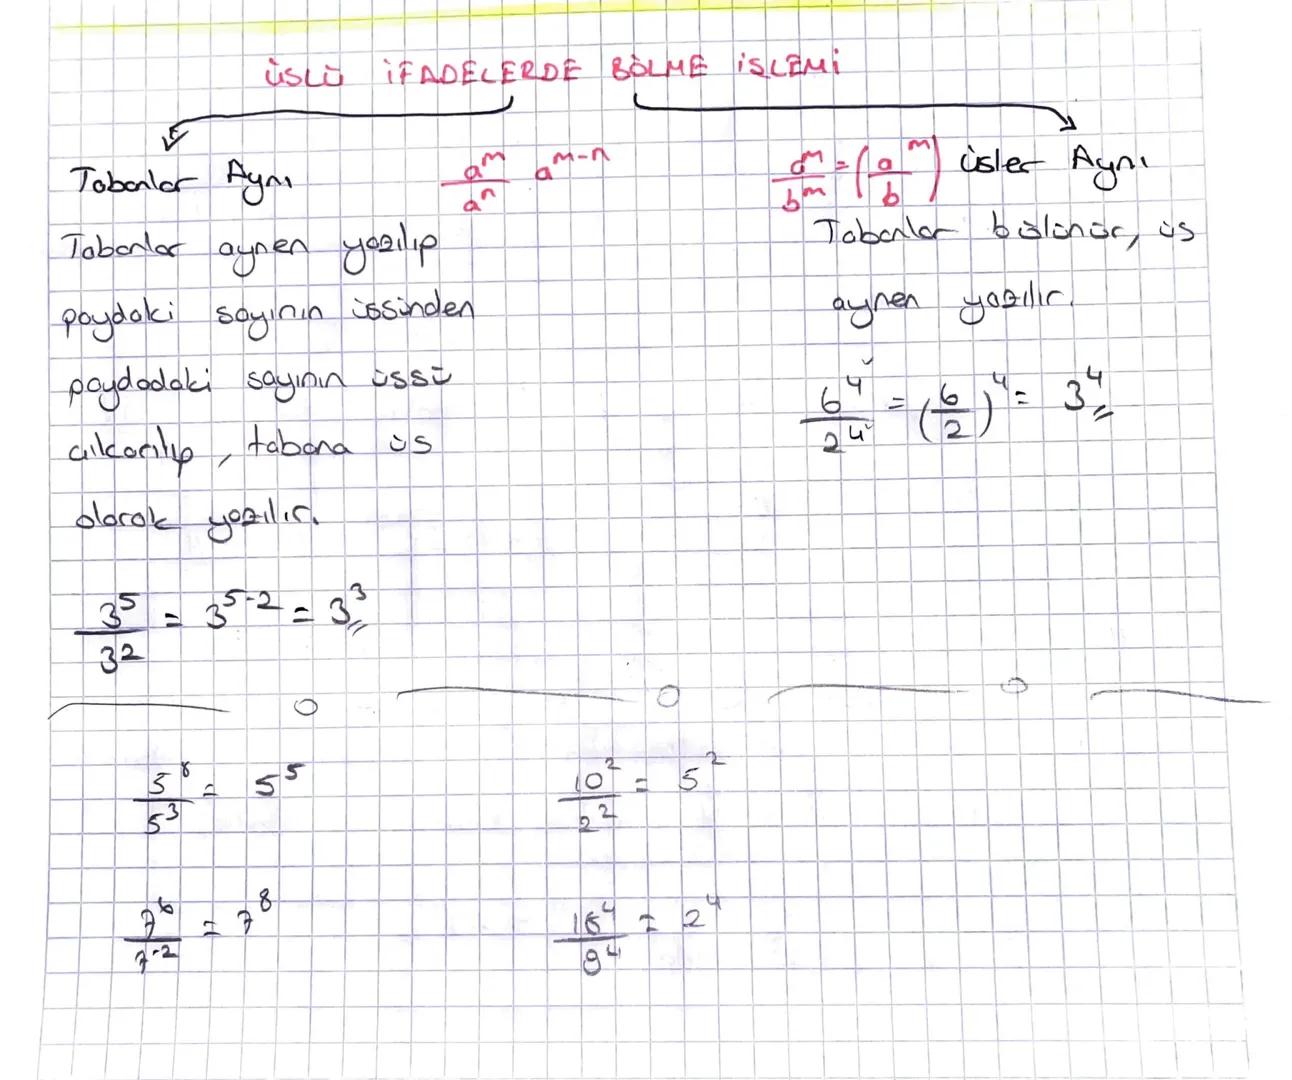 ÜSLÜ İFADELERDE BÖLME İŞLEMİ
Tabanlar Aynı a^m/a^n a^m-n
Tabanlar aynen yazılıp
paydaki sayının üssünden
paydadaki sayının üssü
çıkarılıp, tabana üs
olarak yazılır.
3^5/3^2 = 3^5-2 = 3^3
a^m/b^m = (a/b ^m) üsler Aynı
Tabanlar bölünür, üs
aynen yazılır.
6^4/2^4 = (6/2)^4 = 3^4
5^8/5^3 = 5^5
10^2/2^2 = 5^2
7^6/7^-2 = 7^8
16^4/8^4 = 2^4